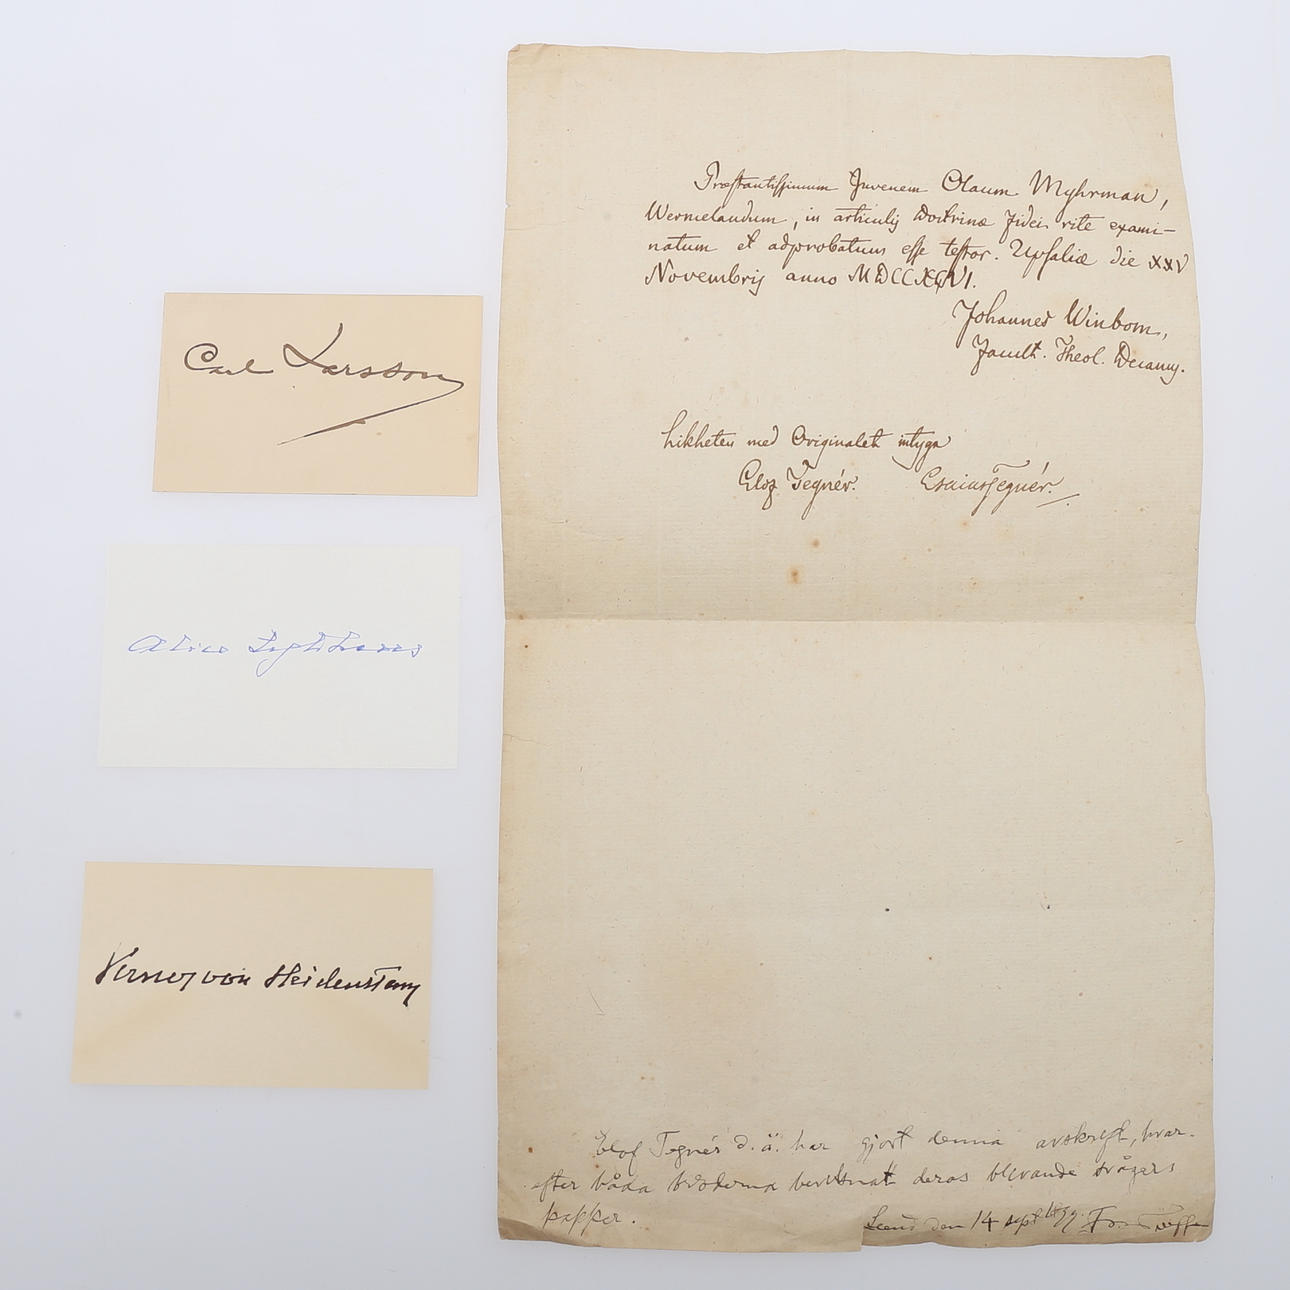 Carl Larsson
Alice Lyttkens
Verner von Heidenstam
Præstantissimum Juvenem Olaum Myhrman,
Wermelandum, in articulis Doctrinæ fidei rite exami-
natum et adprobatum esse testor. Upsaliæ die XXV
Novembris anno MDCCXCVI.
Johannes Winbom,
Facult. Theol. Decanus.
Likheten med Originalet intyga
Elof Tegnér. Esaias Tegnér.
Elof Tegnér d.ä. har gjort denna avskrift, var-
efter båda bröderna bevittnat deras blivande svågers
papper.
Lund den 14 sept